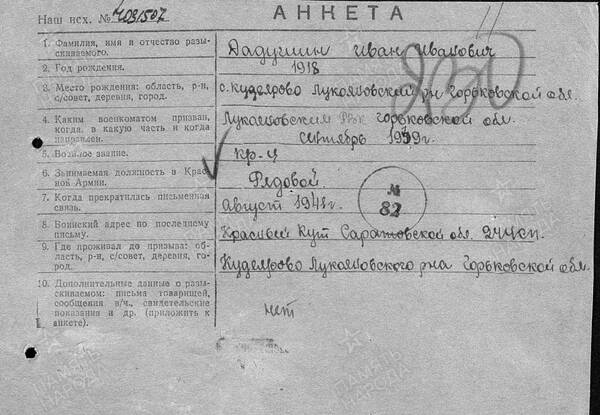 Наш исх. № 4091507
АНКЕТА
1. Фамилия, имя и отчество разы-
скиваемого.
Дадушкин Иван Иванович
2. Год рождения.
1918
3. Место рождения: область, р-н,
с/совет, деревня, город.
с. Кудеярово Лукояновский р-н Горьковской обл.
4. Каким военкоматом призван,
когда, в какую часть и когда
направлен.
Лукояновским РВК Горьковской обл.
сентябрь 1939 г.
5. Военное звание.
кр-ц
6. Занимаемая должность в Крас-
ной Армии.
Рядовой
7. Когда прекратилась письменная
связь.
Август 1941 г.
№
82
8. Воинский адрес по последнему
письму.
Красный Кут Саратовской обл. 244
9. Где проживал до призыва: об-
ласть, р-н, с/совет, деревня, го-
род.
Кудеярово Лукояновского р-на Горьковской обл.
10. Дополнительные данные о разы-
скиваемом: письма товарищей,
сообщения в/ч., свидетельские
показания и др. (приложить к
анкете).
нет
ПАМЯТЬ
НАРОДА